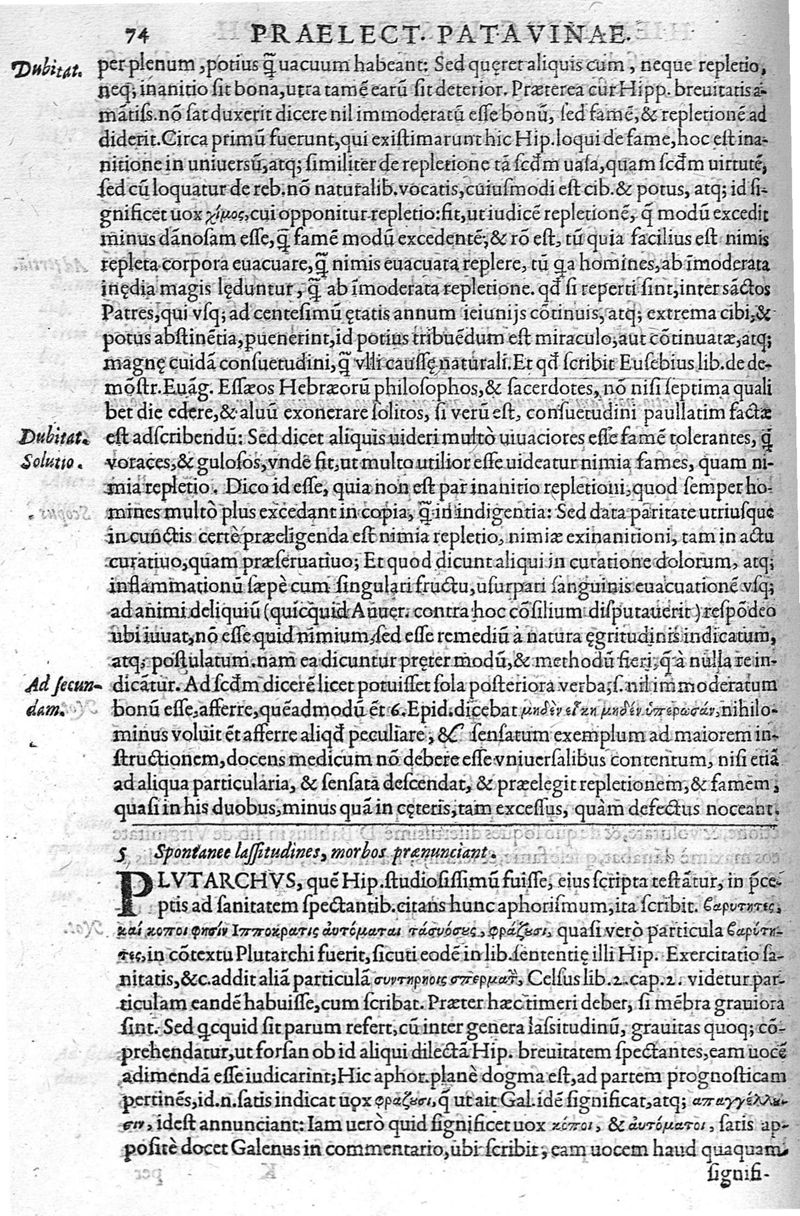 74 PRAELECT. PATAVINAE.
Dubitat.
per plenum, potius q̃ uacuum habeant: Sed quęret aliquis cum, neque repletio,
neq; inanitio sit bona, utra tamẽ earũ sit deterior. Præterea cur Hipp. breuitatis a-
mãtiss. nõ sat duxerit dicere nil immoderatũ esse bonũ, sed famẽ, & repletionẽ ad
diderit. Circa primũ fuerunt, qui existimarunt hic Hip. loqui de fame, hoc est ina-
nitione in uniuersũ, atq; similiter de repletione tã scd̃m uasa, quam scd̃m uirtutẽ,
sed cũ loquatur de reb. nõ naturalib. vocatis, cuiusmodi est cib. & potus, atq; id si-
gnificet uox χίμος, cui opponitur repletio: fit, ut iudicẽ repletionẽ, q̃ modũ excedit
minus dãnosam esse, q̃ famẽ modũ excedentẽ; & rõ est, tũ quia facilius est nimis
repleta corpora euacuare, q̃ nimis euacuata replere, tũ q̃a homines, ab ĩmoderata
inędia magis lęduntur, q̃ ab ĩmoderata repletione. qd̃ si reperti sint, inter sãctos
Patres, qui vsq; ad centesimũ ętatis annum ieiunijs cõtinuis, atq; extrema cibi, &
potus abstinẽtia, puenerint, id potius tribuẽdum est miraculo, aut cõtinuatæ, atq;
magnę cuidã consuetudini, q̃ vlli caussę naturali. Et qd̃ scribit Eusebius lib. de de-
mõstr. Euãg. Essæos Hebræorũ philosophos, & sacerdotes, nõ nisi septima quali
bet die edere, & aluũ exonerare solitos, si verũ est, consuetudini paullatim factæ
Dubitat.
est adscribendũ: Sed dicet aliquis uideri multò uiuaciores esse famẽ tolerantes, q̃
Solutio.
voraces, & gulosos, vndẽ fit, ut multo utilior esse uideatur nimia fames, quam ni-
mia repletio. Dico id esse, quia non est par inanitio repletioni, quod semper ho-
mines multò plus excedant in copia, q̃ in indigentia: Sed data paritate utriusque
in cunctis certè præeligenda est nimia repletio, nimiæ exinanitioni, tam in actu
curatiuo, quam præseruatiuo; Et quod dicunt aliqui in curatione dolorum, atq;
inflammationũ sæpè cum singulari fructu, usurpari sanguinis euacuationẽ vsq;
ad animi deliquiũ (quicquid Auuer. contra hoc cõsilium disputauerit) respõdeo
ubi iuuat, nõ esse quid nimium, sed esse remediũ à natura ęgritudinis indicatum,
atq; postulatum. nam ea dicuntur pręter modũ, & methodũ fieri, q̃ à nulla re in-
Ad secun-
dicãtur. Ad scd̃m dicerẽ licet potuisset sola posteriora verba, s. nil immoderatum
dam.
bonũ esse, afferre, quẽadmodũ ẽt 6. Epid. dicebat μηδὲν εἰκῆ μηδὲν ὑπερωσᾶν, nihilo-
minus voluit ẽt afferre aliqd̃ peculiare, & sensatum exemplum ad maiorem in-
structionem, docens medicum nõ debere esse vniuersalibus contentum, nisi etiã
ad aliqua particularia, & sensata descendat, & præelegit repletionem, & famem,
quasi in his duobus, minus quã in cęteris, tam excessus, quàm defectus noceant.
5 Spontanee lassitudines, morbos prænunciant.
PLVTARCHVS, quẽ Hip. studiosissimũ fuisse, eius scripta testãtur, in p̃ce-
ptis ad sanitatem spectantib. citans hunc aphorismum, ita scribit. βαρύτητες,
καὶ κοποι φησὶν Ιπποκρατις αὐτόμαται τὰς νόσους, φράζουσι, quasi verò particula βαρύτη-
τες, in cõtextu Plutarchi fuerit, sicuti eodẽ in lib. sententię illi Hip. Exercitatio sa-
nitatis, &c. addit aliã particulã συντηρηοις σπερματ̃, Celsus lib. 2. cap. 2. videtur par-
ticulam eandẽ habuisse, cum scribat. Præter hæc timeri deber, si mẽbra grauiora
sint. Sed qcquid sit parum refert, cũ inter genera lassitudinũ, grauitas quoq; cõ-
prehendatur, ut forsan ob id aliqui dilectã Hip. breuitatem spectantes, eam uocẽ
adimendã esse iudicarint; Hic aphor. planè dogma est, ad partem prognosticam
pertinẽs, id. n. satis indicat uox φράζουσι, q̃ ut ait Gal. idẽ significat, atq; απαγγέλλου-
σιν, idest annunciant: Iam uerò quid significet uox κόποι, & αὐτόματοι, satis ap-
positè docet Galenus in commentario, ubi scribit, eam uocem haud quaquam
signifi-